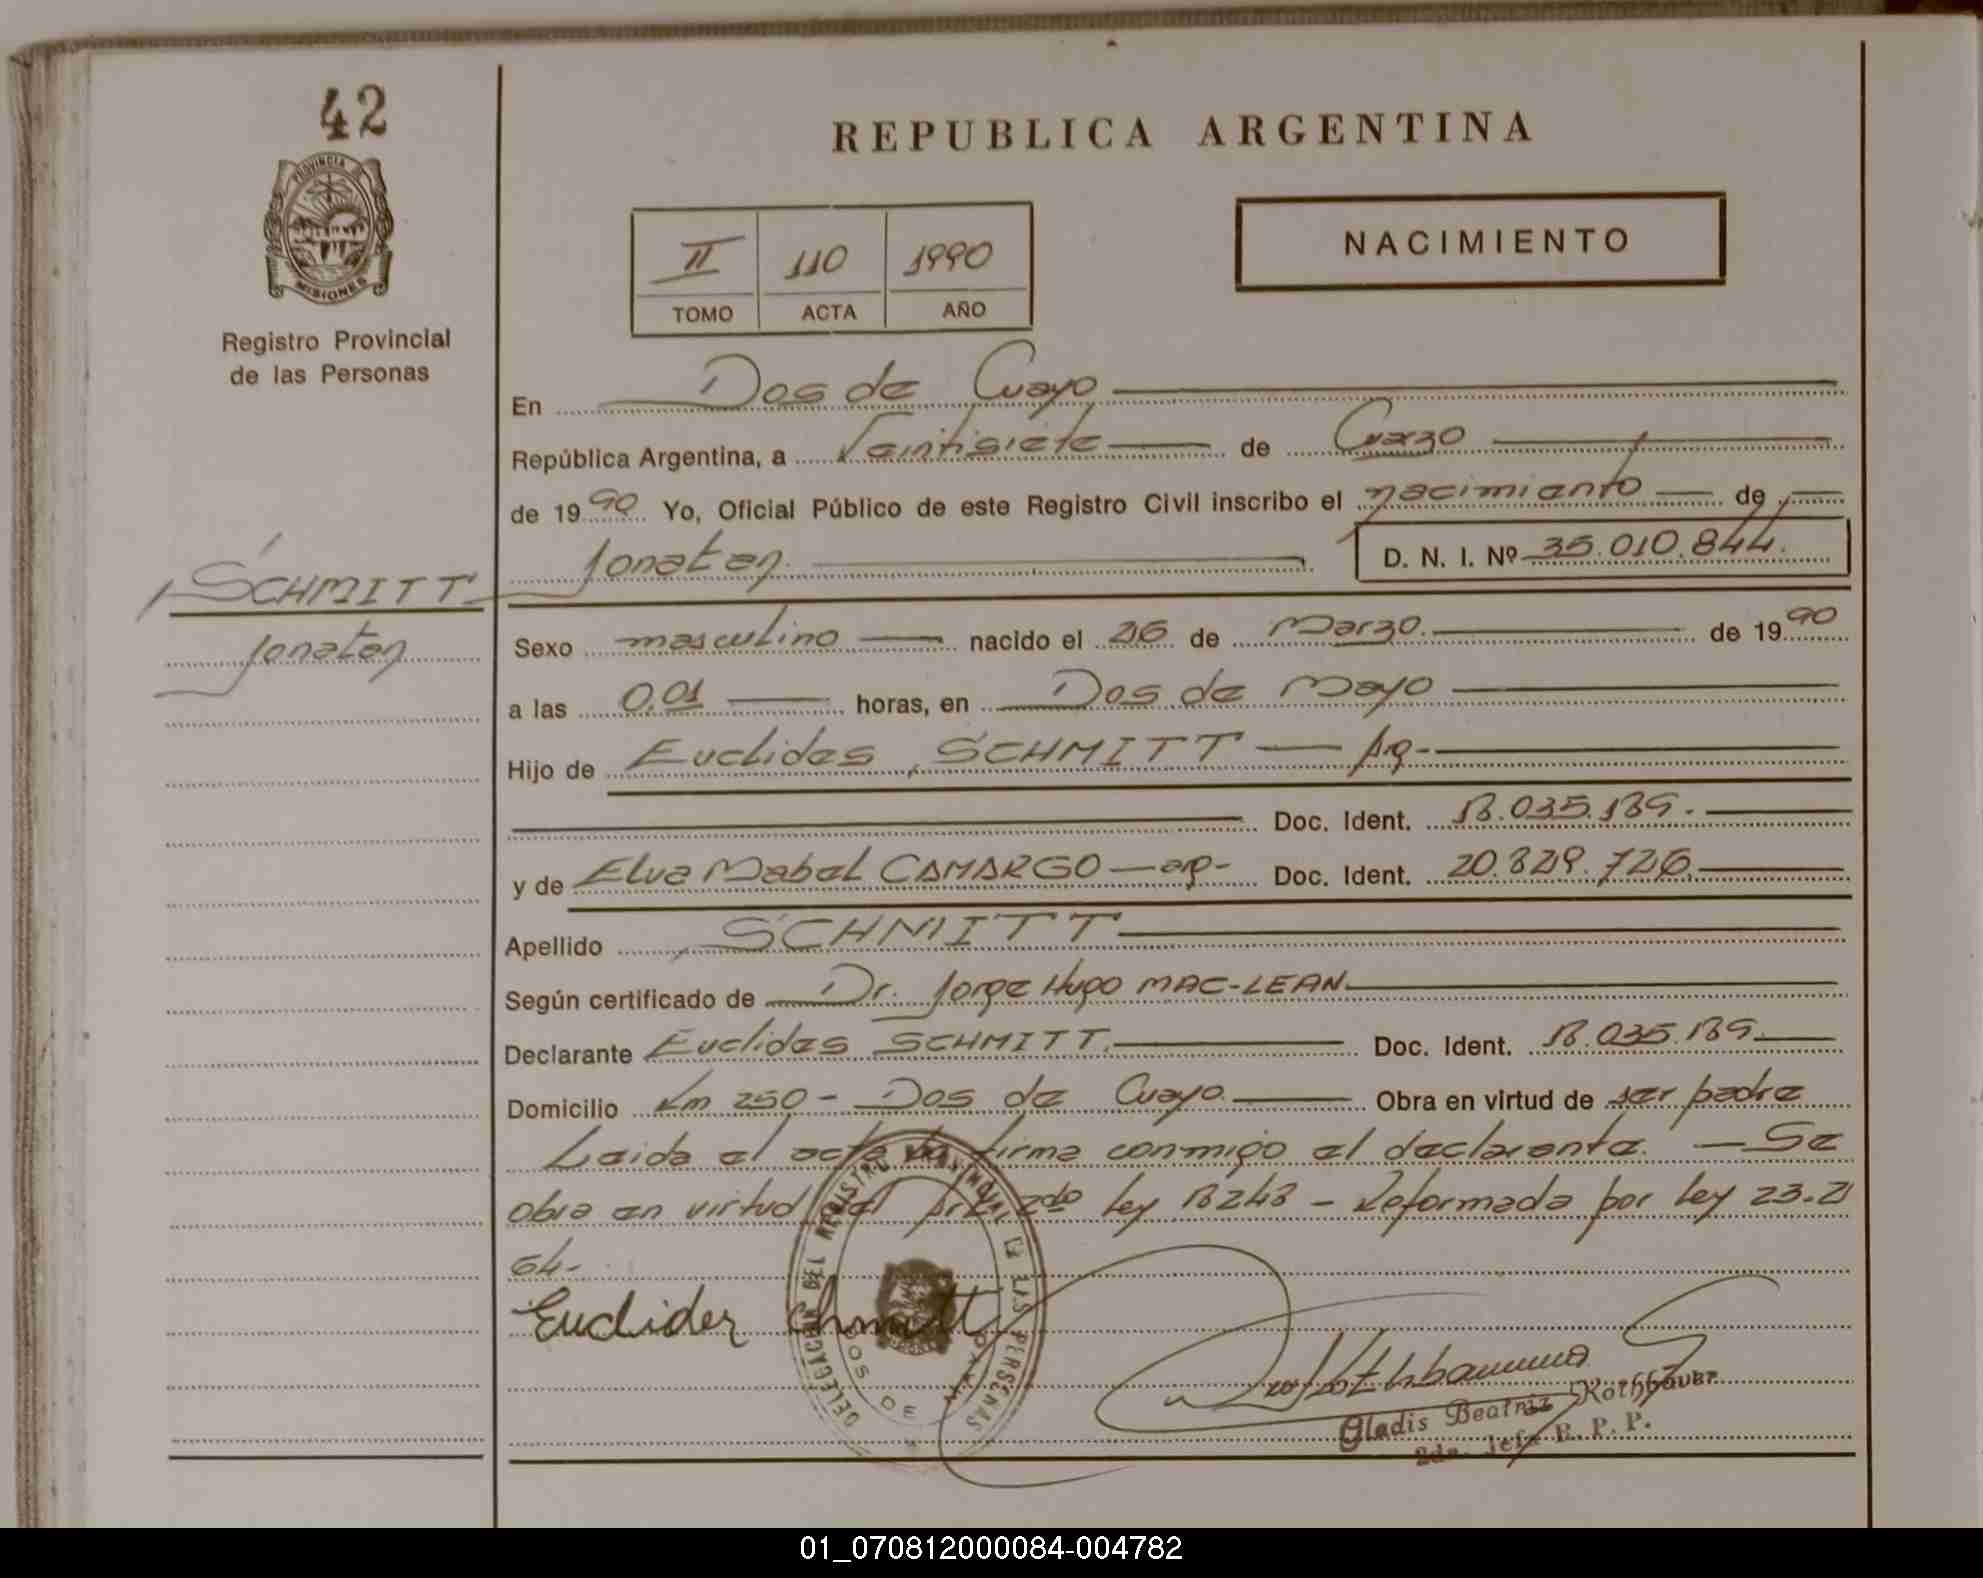 42
PROVINCIA DE
MISIONES
Registro Provincial
de las Personas
REPUBLICA ARGENTINA
II 110 1990
TOMO ACTA AÑO
NACIMIENTO
En Dos de Mayo
República Argentina, a Veintisiete de Marzo
de 1990 Yo, Oficial Público de este Registro Civil inscribo el nacimiento de
Jonatan D. N. I. Nº 35.010.844.
SCHMITT
Jonatan
Sexo masculino nacido el 26 de Marzo. de 1990
a las 0,01 horas, en Dos de Mayo
Hijo de Euclides SCHMITT arg-
Doc. Ident. 18.035.189.
y de Elva Mabel CAMARGO - arg- Doc. Ident. 20.829.726.
Apellido SCHMITT
Según certificado de Dr. Jorge Hugo MAC-LEAN
Declarante Euclides SCHMITT. Doc. Ident. 18.035.189.
Domicilio Km 250 - Dos de Mayo. Obra en virtud de ser padre
Leida el acta la firma conmigo el declarante. - Se
obra en virtud del Art. 2do ley 18248 - Reformada por ley 23.2
64.-
Euclider Chmitt
DELEGACION 139 REGISTRO PROVINCIAL DE LAS PERSONAS
DOS DE MAYO
Gladis Beatriz Rothbauer
2da. Jefa R. P. P.
01_070812000084-004782